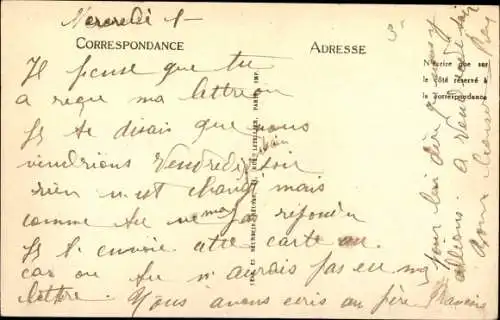 Mercredi
CORRESPONDANCE
ADRESSE
N'écrire que sur
le côté réservé à
la correspondance
Je pense que tu
a reçue ma lettre ou
je te disais que nous
viendrions Vendredi soir
rien n'est changé mais
comme tu ne m'a pas répondu
je t'envoie cette carte
car ou tu n'aurais pas eu ma
lettre. Nous avons écris au père Francis
pour lui dire que nous y
allions. a Vendredi soir
Bons baisers